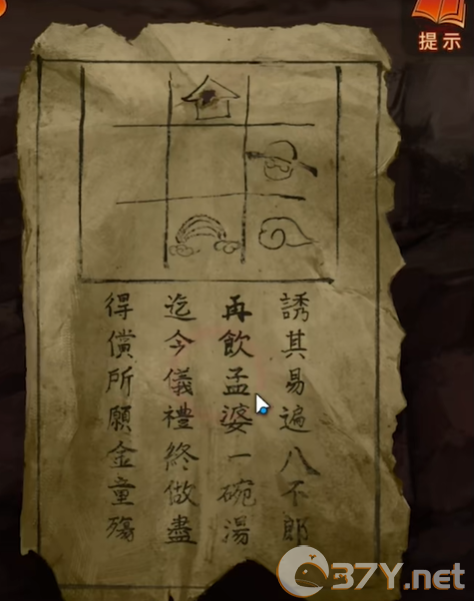 提示
誘其易遍八不郎
再飲孟婆一碗湯
迄今儀禮終做盡
得償所願金童殤
37Y.net